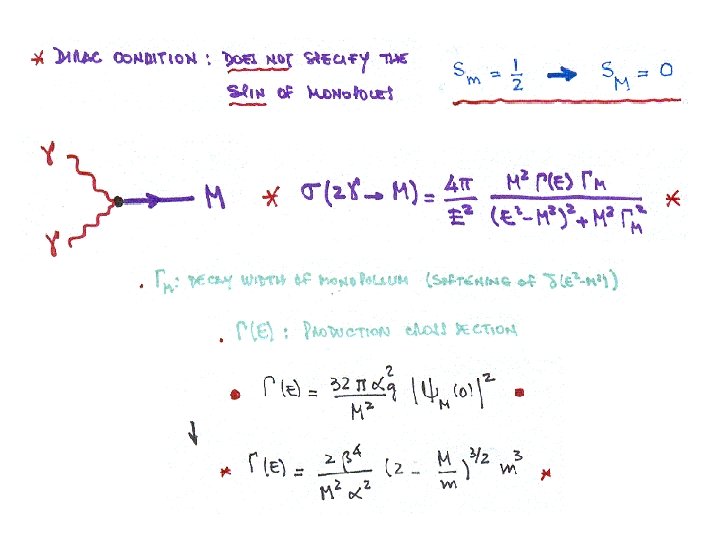 * DIRAC CONDITION : DOES NOT SPECIFY THE
SPIN OF MONOPOLES
S_m = 1/2 → S_M = 0
γ
γ
M
* σ(2γ → M) = 4π/E² M² Γ(E) Γ_M / ((E²-M²)² + M² Γ_M²) *
. Γ_M : DECAY WIDTH OF MONOPOLIUM (SOFTENING OF δ(E²-M²))
. Γ(E) : PRODUCTION CROSS SECTION
• Γ(E) = 32 π α_g² / M² |ψ_M(0)|² ▪
↓
* Γ(E) = 2 β⁴ / M² α² (2 - M/m)^3/2 m³ *